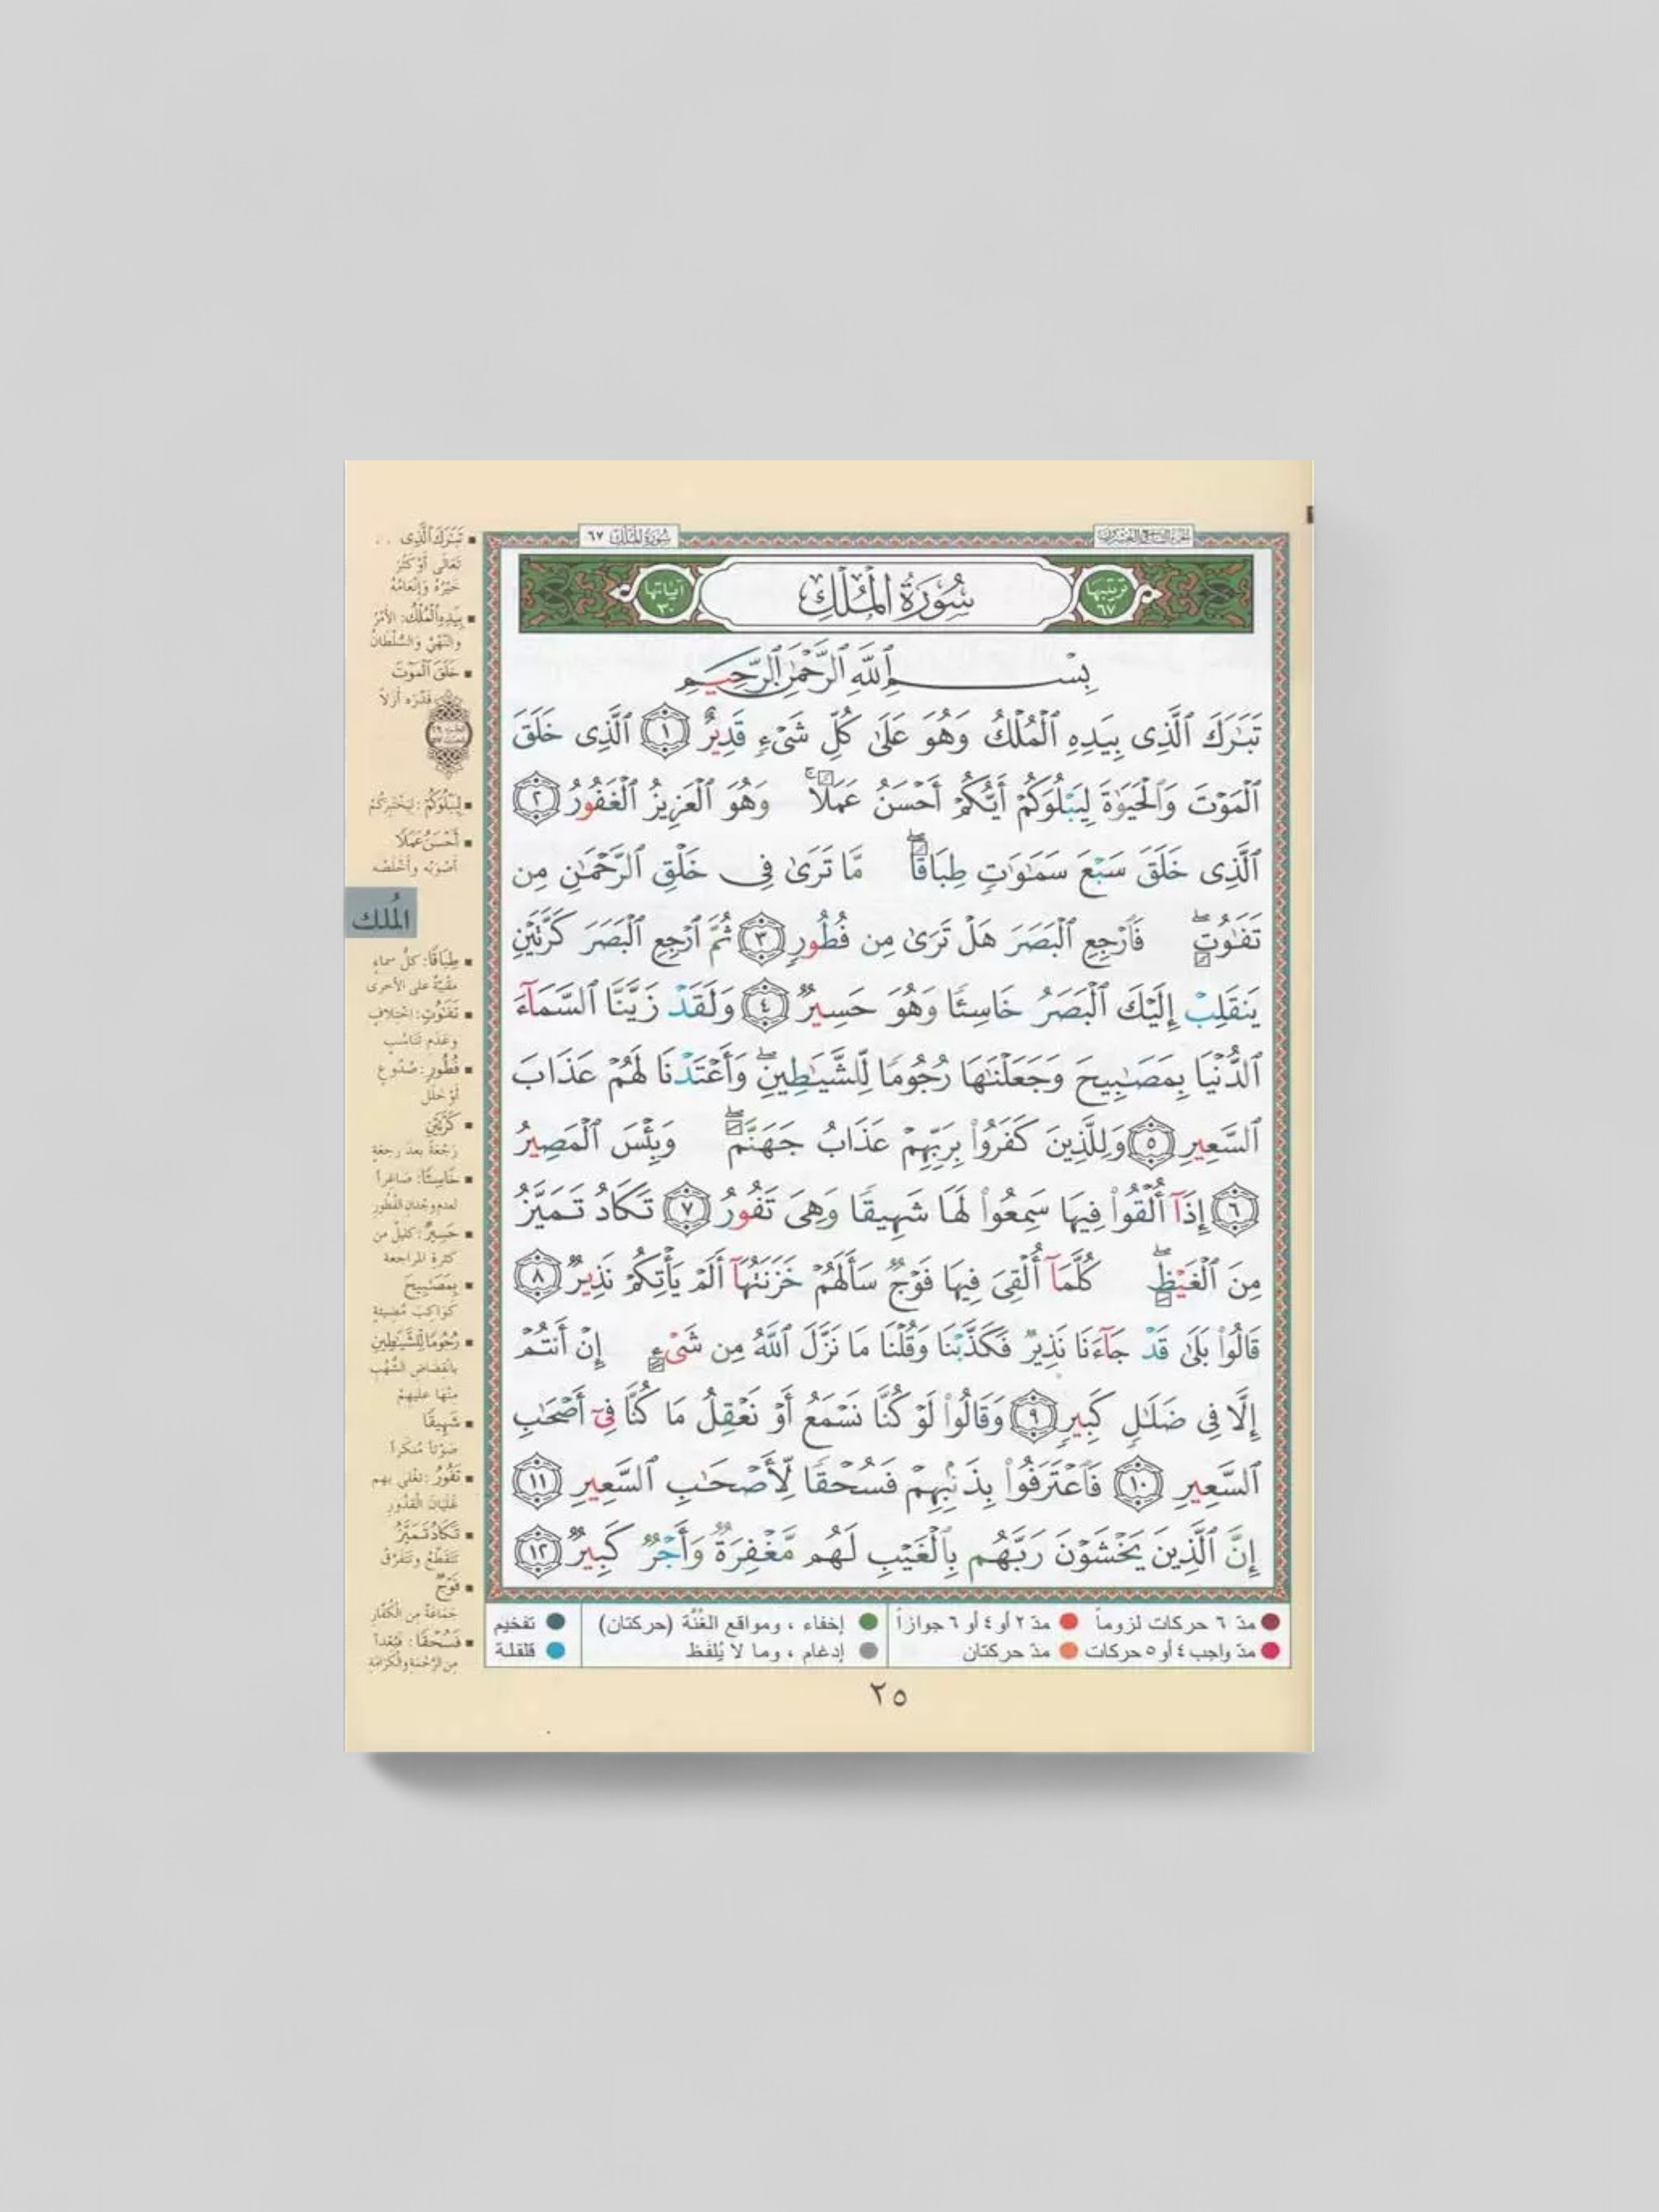 الجزء التاسع والعشرون
سُورَةُ المُلْكِ ٦٧
ترتيبها ٦٧
سُورَةُ المُلْكِ
آياتها ٣٠
بِسْمِ ٱللَّهِ ٱلرَّحْمَٰنِ ٱلرَّحِيمِ
تَبَٰرَكَ ٱلَّذِى بِيَدِهِ ٱلْمُلْكُ وَهُوَ عَلَىٰ كُلِّ شَىْءٍ قَدِيرٌ ١ ٱلَّذِى خَلَقَ
ٱلْمَوْتَ وَٱلْحَيَوٰةَ لِيَبْلُوَكُمْ أَيُّكُمْ أَحْسَنُ عَمَلًا ۚ وَهُوَ ٱلْعَزِيزُ ٱلْغَفُورُ ٢
ٱلَّذِى خَلَقَ سَبْعَ سَمَٰوَٰتٍ طِبَاقًا ۖ مَّا تَرَىٰ فِى خَلْقِ ٱلرَّحْمَٰنِ مِن
تَفَٰوُتٍ ۖ فَٱرْجِعِ ٱلْبَصَرَ هَلْ تَرَىٰ مِن فُطُورٍ ٣ ثُمَّ ٱرْجِعِ ٱلْبَصَرَ كَرَّتَيْنِ
يَنقَلِبْ إِلَيْكَ ٱلْبَصَرُ خَاسِئًا وَهُوَ حَسِيرٌ ٤ وَلَقَدْ زَيَّنَّا ٱلسَّمَآءَ
ٱلدُّنْيَا بِمَصَٰبِيحَ وَجَعَلْنَٰهَا رُجُومًا لِّلشَّيَٰطِينِ ۖ وَأَعْتَدْنَا لَهُمْ عَذَابَ
ٱلسَّعِيرِ ٥ وَلِلَّذِينَ كَفَرُوا۟ بِرَبِّهِمْ عَذَابُ جَهَنَّمَ ۖ وَبِئْسَ ٱلْمَصِيرُ
٦ إِذَآ أُلْقُوا۟ فِيهَا سَمِعُوا۟ لَهَا شَهِيقًا وَهِىَ تَفُورُ ٧ تَكَادُ تَمَيَّزُ
مِنَ ٱلْغَيْظِ ۖ كُلَّمَآ أُلْقِىَ فِيهَا فَوْجٌ سَأَلَهُمْ خَزَنَتُهَآ أَلَمْ يَأْتِكُمْ نَذِيرٌ ٨
قَالُوا۟ بَلَىٰ قَدْ جَآءَنَا نَذِيرٌ فَكَذَّبْنَا وَقُلْنَا مَا نَزَّلَ ٱللَّهُ مِن شَىْءٍ إِنْ أَنتُمْ
إِلَّا فِى ضَلَٰلٍ كَبِيرٍ ٩ وَقَالُوا۟ لَوْ كُنَّا نَسْمَعُ أَوْ نَعْقِلُ مَا كُنَّا فِىٓ أَصْحَٰبِ
ٱلسَّعِيرِ ١٠ فَٱعْتَرَفُوا۟ بِذَنۢبِهِمْ فَسُحْقًا لِّأَصْحَٰبِ ٱلسَّعِيرِ ١١
إِنَّ ٱلَّذِينَ يَخْشَوْنَ رَبَّهُم بِٱلْغَيْبِ لَهُم مَّغْفِرَةٌ وَأَجْرٌ كَبِيرٌ ١٢
تَبَٰرَكَ ٱلَّذِى
تَعَالَى أَوْ كَثُرَ
خَيْرُهُ وَإِنْعَامُهُ
بِيَدِهِ ٱلْمُلْكُ: الأَمْرُ
والنَّهْيُ والسُّلْطانُ
خَلَقَ ٱلْمَوْتَ
قَدَّرَه أزلاً
لِيَبْلُوَكُمْ: ليَختبرَكُم
أَحْسَنُ عَمَلًا
أصْوَبُه وأخْلَصُه
المُلك
طِبَاقًا: كلُّ سماءٍ
مقْبيّةٌ على الأخرى
تَفَٰوُتٍ: اختِلافٍ
وعَدَم تَنَاسُبٍ
فُطُورٍ: صُدُوعٍ
أوْ خَلَلٍ
كَرَّتَيْنِ
رَجْعَةً بعدَ رجعةٍ
خَاسِئًا: صَاغراً
لعدم وِجْدانِ الفُطُورِ
حَسِيرٌ: كليلٌ من
كثرةِ المراجعة
بِمَصَٰبِيحَ
كَواكِبَ مُضيئةٍ
رُجُومًا لِّلشَّيَٰطِينِ
بانْقِضاضِ الشُّهُبِ
مِنْهَا عليهمْ
شَهِيقًا
صَوْتاً مُنكَراً
تَفُورُ: تَغْلي بهم
غَلَيَانَ القُدُورِ
تَكَادُ تَمَيَّزُ
تَتَقَطَّعُ وتَتَفَرَّقُ
فَوْجٌ
جَمَاعَةٌ مِنَ الْكُفَّارِ
فَسُحْقًا: فَبُعْداً
مِنَ الرَّحْمَةِ والْكَرَامَةِ
مدّ ٦ حركات لزوماً
مدّ ٢ أو ٤ أو ٦ جوازاً
إخفاء ، ومواقع الغُنَّة (حركتان)
تفخيم
مدّ واجب ٤ أو ٥ حركات
مدّ حركتان
إدغام ، وما لا يُلفَظ
قلقلة
٢٥